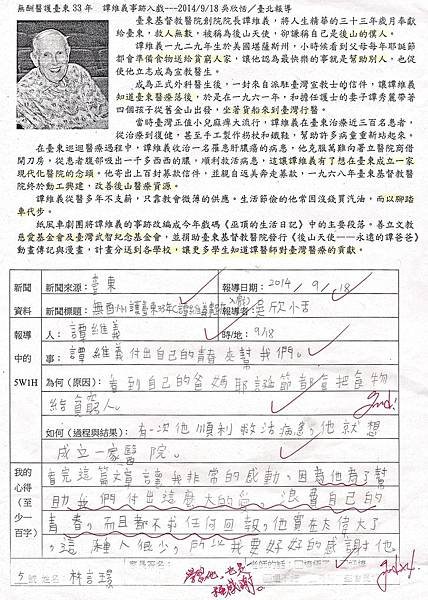 無酬醫護臺東33年 譚維義事跡入戲---2014/9/18 吳欣恬/臺北報導
臺東基督教醫院創院院長譚維義，將人生精華的三十三年歲月奉獻
給臺東，救人無數，被稱為後山天使，卻謙稱自己是後山的僕人。
譚維義一九二九年生於美國堪薩斯州，小時候看到父母每年耶誕節
都會準備食物送給貧窮人家，讓他認為最快樂的事就是幫助別人，也促
使他立志成為宣教醫生。
成為正式外科醫生後，一封來自派駐臺灣宣教士的信件，讓譚維義
知道臺東醫療落後，於是在一九六一年，和擔任護士的妻子譚秀麗帶著
四個孩子從舊金山出發，坐著貨船來到臺灣行醫。
當時臺灣正值小兒麻痺大流行，譚維義在臺東治療近三百名患者，
從治療到復健，甚至手工製作柺杖和鐵鞋，幫助許多病童重新站起來。
在臺東巡迴醫療過程中，譚維義收治一名罹患肝膿瘍的病患，他克服萬難向署立醫院商借
開刀房，從患者腹部吸出一千多西西的膿，順利救活病患，這讓譚維義有了想在臺東成立一家
現代化醫院的念頭。他寄出上百封募款信件，並親自返美奔走募款，一九六八年臺東基督教醫
院終於動工興建，改善後山醫療資源。
譚維義從醫多年不支薪，只靠教會微薄的供應。生活節儉的他常因沒錢買汽油，而以腳踏
車代步。
紙風車劇團將譚維義的事跡改編成今年戲碼《巫頂的生活日記》中的主要段落。善立文教
慈愛基金會及臺灣武智紀念基金會，並捐助臺東基督教醫院發行《後山天使——永遠的譚爸爸》
動畫傳記與漫畫，計畫分送到各學校，讓更多學生知道譚醫師對臺灣醫療的貢獻。
新聞 新聞來源：臺東 報導日期：2014/9/18
資料 新聞標題：無酬醫護臺東33年譚維義事跡入戲 報導者：吳欣恬
報導 人：譚維義 時/地：9/18
中的 事：譚維義付出自己的青春來幫我們。
5W1H 為何(原因)：看到自己的爸媽耶誕節都會把食物
給貧窮人。
如何(過程與結果)：有一次他順利救活病患，他就想
成立一家醫院。
我的 看完這篇文章讓我非常的感動，因為他為了幫
心得 助我們付出這麼大的
(至 浪費自己的
少一 青春，而且都不求任何回報，他實在太偉大了
百字) ，這種人很少，所以我要好好的感謝他。
5號 姓名 林言